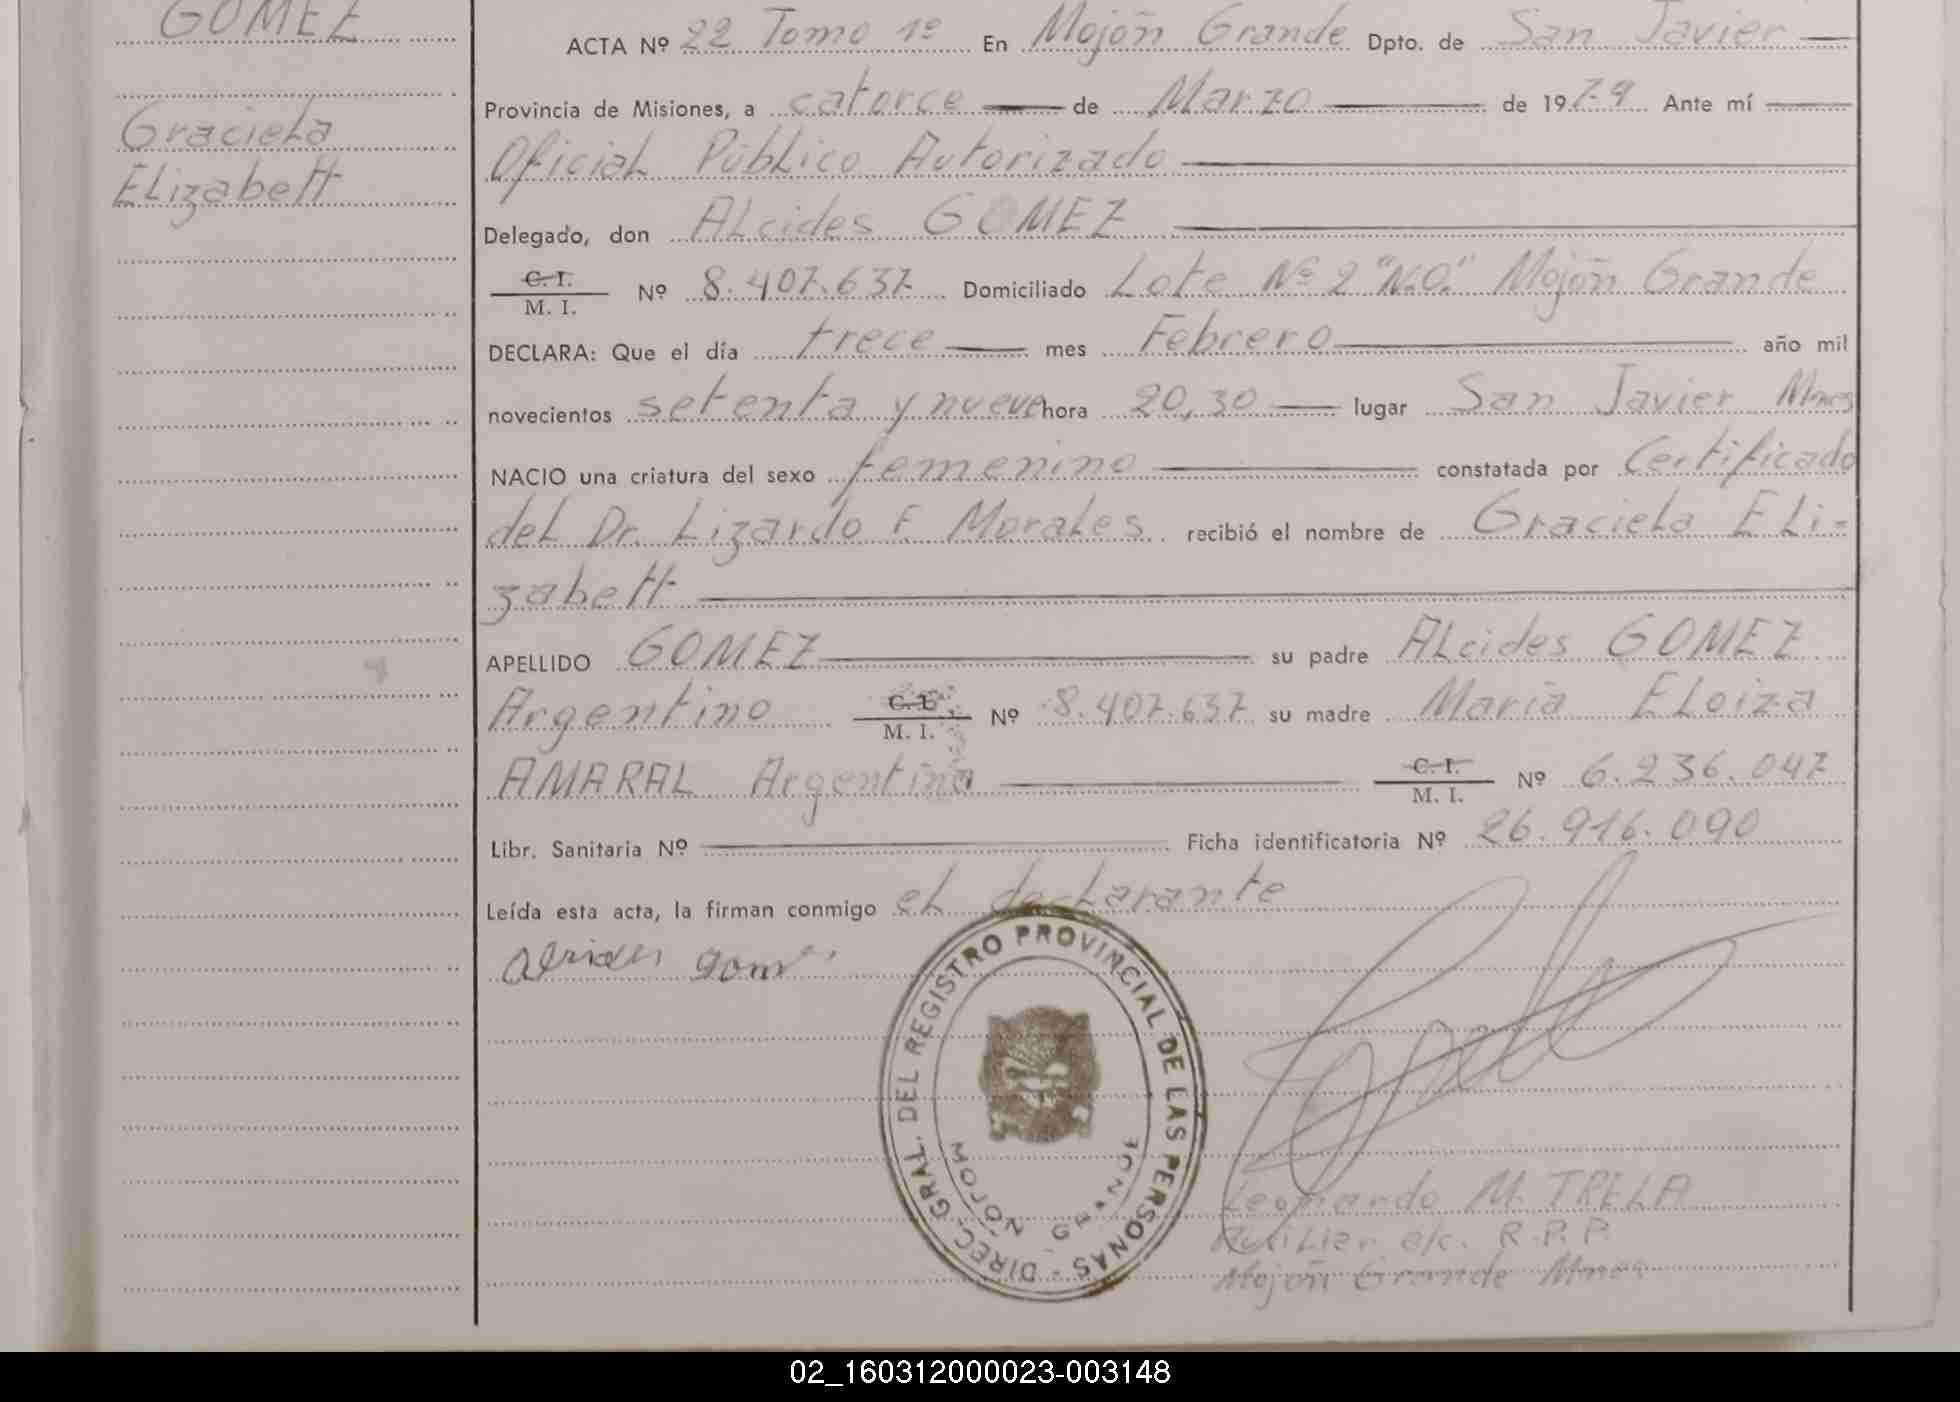 GOMEZ
Graciela
Elizabett
ACTA Nº 22 Tomo 1º En Mojón Grande Dpto. de San Javier
Provincia de Misiones, a catorce de Marzo de 1979 Ante mí
Oficial Público Autorizado
Delegado, don Alcides GOMEZ
C. I.
M. I. Nº 8.407.637 Domiciliado Lote Nº 2 "N.O." Mojón Grande
DECLARA: Que el día trece mes Febrero año mil
novecientos setenta y nueve hora 20,30 lugar San Javier Mnes
NACIO una criatura del sexo femenino constatada por Certificado
del Dr. Lizardo F. Morales recibió el nombre de Graciela Eli=
zabett
APELLIDO GOMEZ su padre Alcides GOMEZ
Argentino C. I. M. I. Nº 8.407.637 su madre María Eloiza
AMARAL Argentina C. I. M. I. Nº 6.236.047
Libr. Sanitaria Nº Ficha identificatoria Nº 26.916.090
Leída esta acta, la firman conmigo el declarante
DIREC. GRAL. DEL REGISTRO PROVINCIAL DE LAS PERSONAS -
MOJON GRANDE
Leonardo M. TRELA
Auxiliar a/c. R.P.P.
Mojón Grande Mnes
02_160312000023-003148